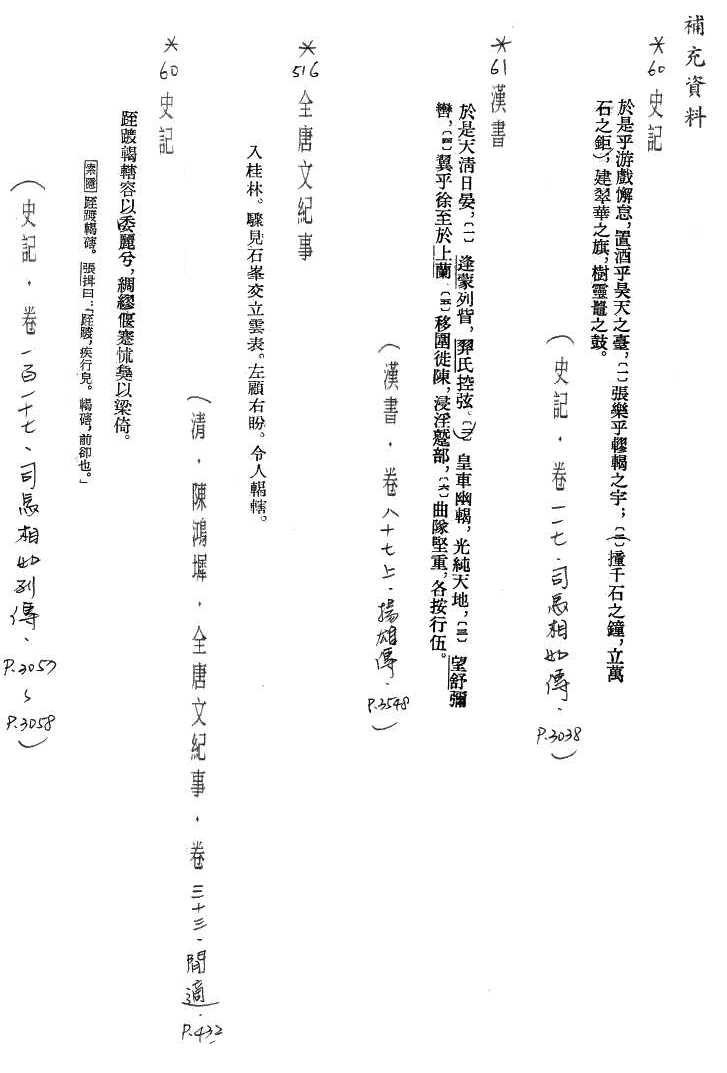 補充資料
*60 史記
於是乎游戲懈怠，置酒乎昊天之臺，〔一〕張樂乎轇輵之宇；〔二〕撞千石之鐘，立萬
石之鉅；建翠華之旗，樹靈鼉之鼓。
（史記．卷一一七．司馬相如傳．P.3038）
*61 漢書
於是天清日晏，〔一〕逢蒙列眥，羿氏控弦。〔二〕皇車幽輵，光純天地，〔三〕望舒彌
轡，〔四〕翼乎徐至於上蘭。〔五〕移圍徙陳，浸淫蹵部，〔六〕曲隊堅重，各按行伍。
（漢書．卷八十七上．揚雄傳．P.3548）
*516 全唐文紀事
入桂林。驟見石峯交立雲表。左顧右盼。令人轕轄。
（清．陳鴻墀．全唐文紀事．卷三十三．閒適．P.432
*60 史記
跮踱輵轄容以委麗兮，綢繆偃蹇怵㚟以梁倚。
索隱 跮踱輵磍。張揖曰：「跮踱，疾行皃。輵磍，前卻也。」
（史記．卷一百一十七．司馬相如列傳．P.3057～P.3058）